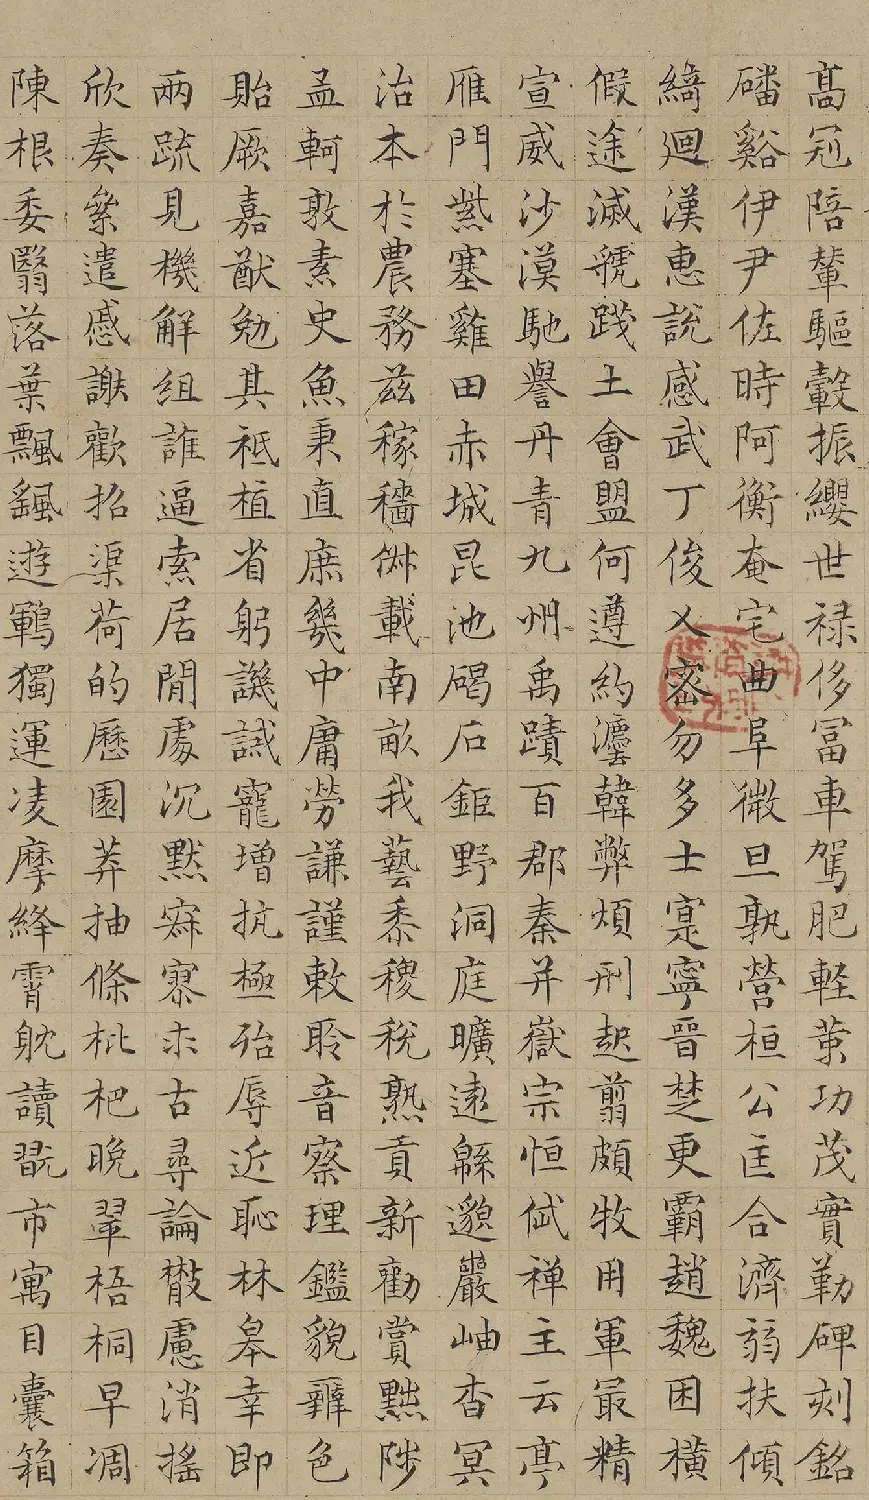 高冠陪輦驅轂振纓世禄侈冨車駕肥軽策功茂實勒碑刻銘
磻谿伊尹佐時阿衡奄宅曲阜微旦孰營桓公匡合濟弱扶傾
綺迴漢惠說感武丁俊乂密勿多士寔寧晉楚更霸趙魏困橫
假途滅虢踐土會盟何遵約灋韓弊煩刑起翦頗牧用軍冣精
宣威沙漠馳譽丹青九州禹蹟百郡秦并嶽宗恒岱禅主云亭
雁門紫塞雞田赤城昆池碣石鉅野洞庭曠遠緜邈巖岫杳冥
治本於農務茲稼穡俶載南畝我藝黍稷稅熟貢新勸賞黜陟
孟軻敦素史魚秉直庶幾中庸勞謙謹敕聆音察理鑑貌辨色
貽厥嘉猷勉其祗植省躬譏誡寵增抗極殆辱近恥林皋幸即
兩疏見機解組誰逼索居閒處沉默寂寥求古尋論散慮消搖
欣奏纍遣慼謝歡招渠荷的歷園莽抽條枇杷晚翠梧桐早凋
陳根委翳落葉飄颻遊鶤獨運凌摩絳霄躭讀翫市寓目囊箱